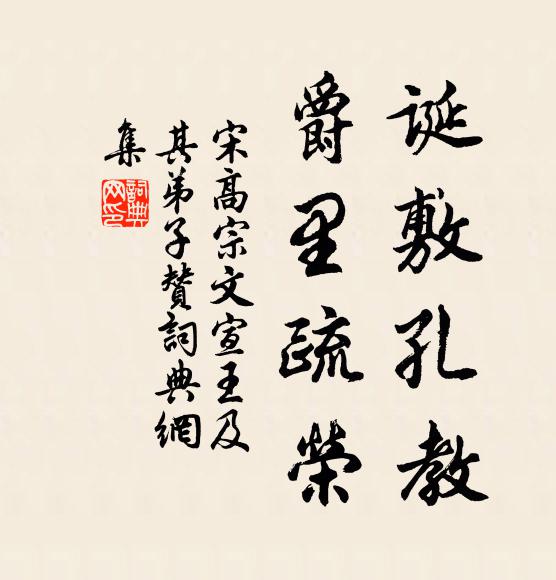 誕敷孔教
爵里疏榮
宋高宗文宣王及
其弟子贊詞典網
集
詞典
网印